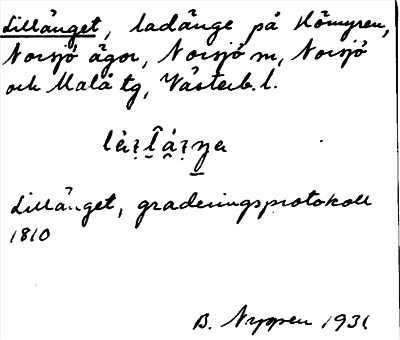 Lillänget, ladänge på Hömyren,
Norsjö ägor, Norsjö sn, Norsjö
och Malå tg, Västerb. l.
Lillänget, graderingsprotokoll
1810
B. Nyppen 1931